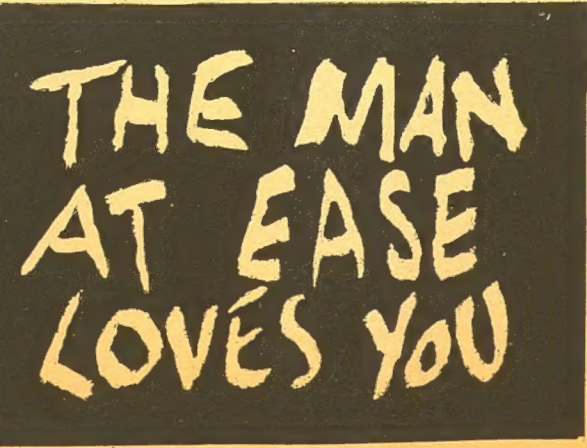 THE MAN
AT EASE
LOVES YOU